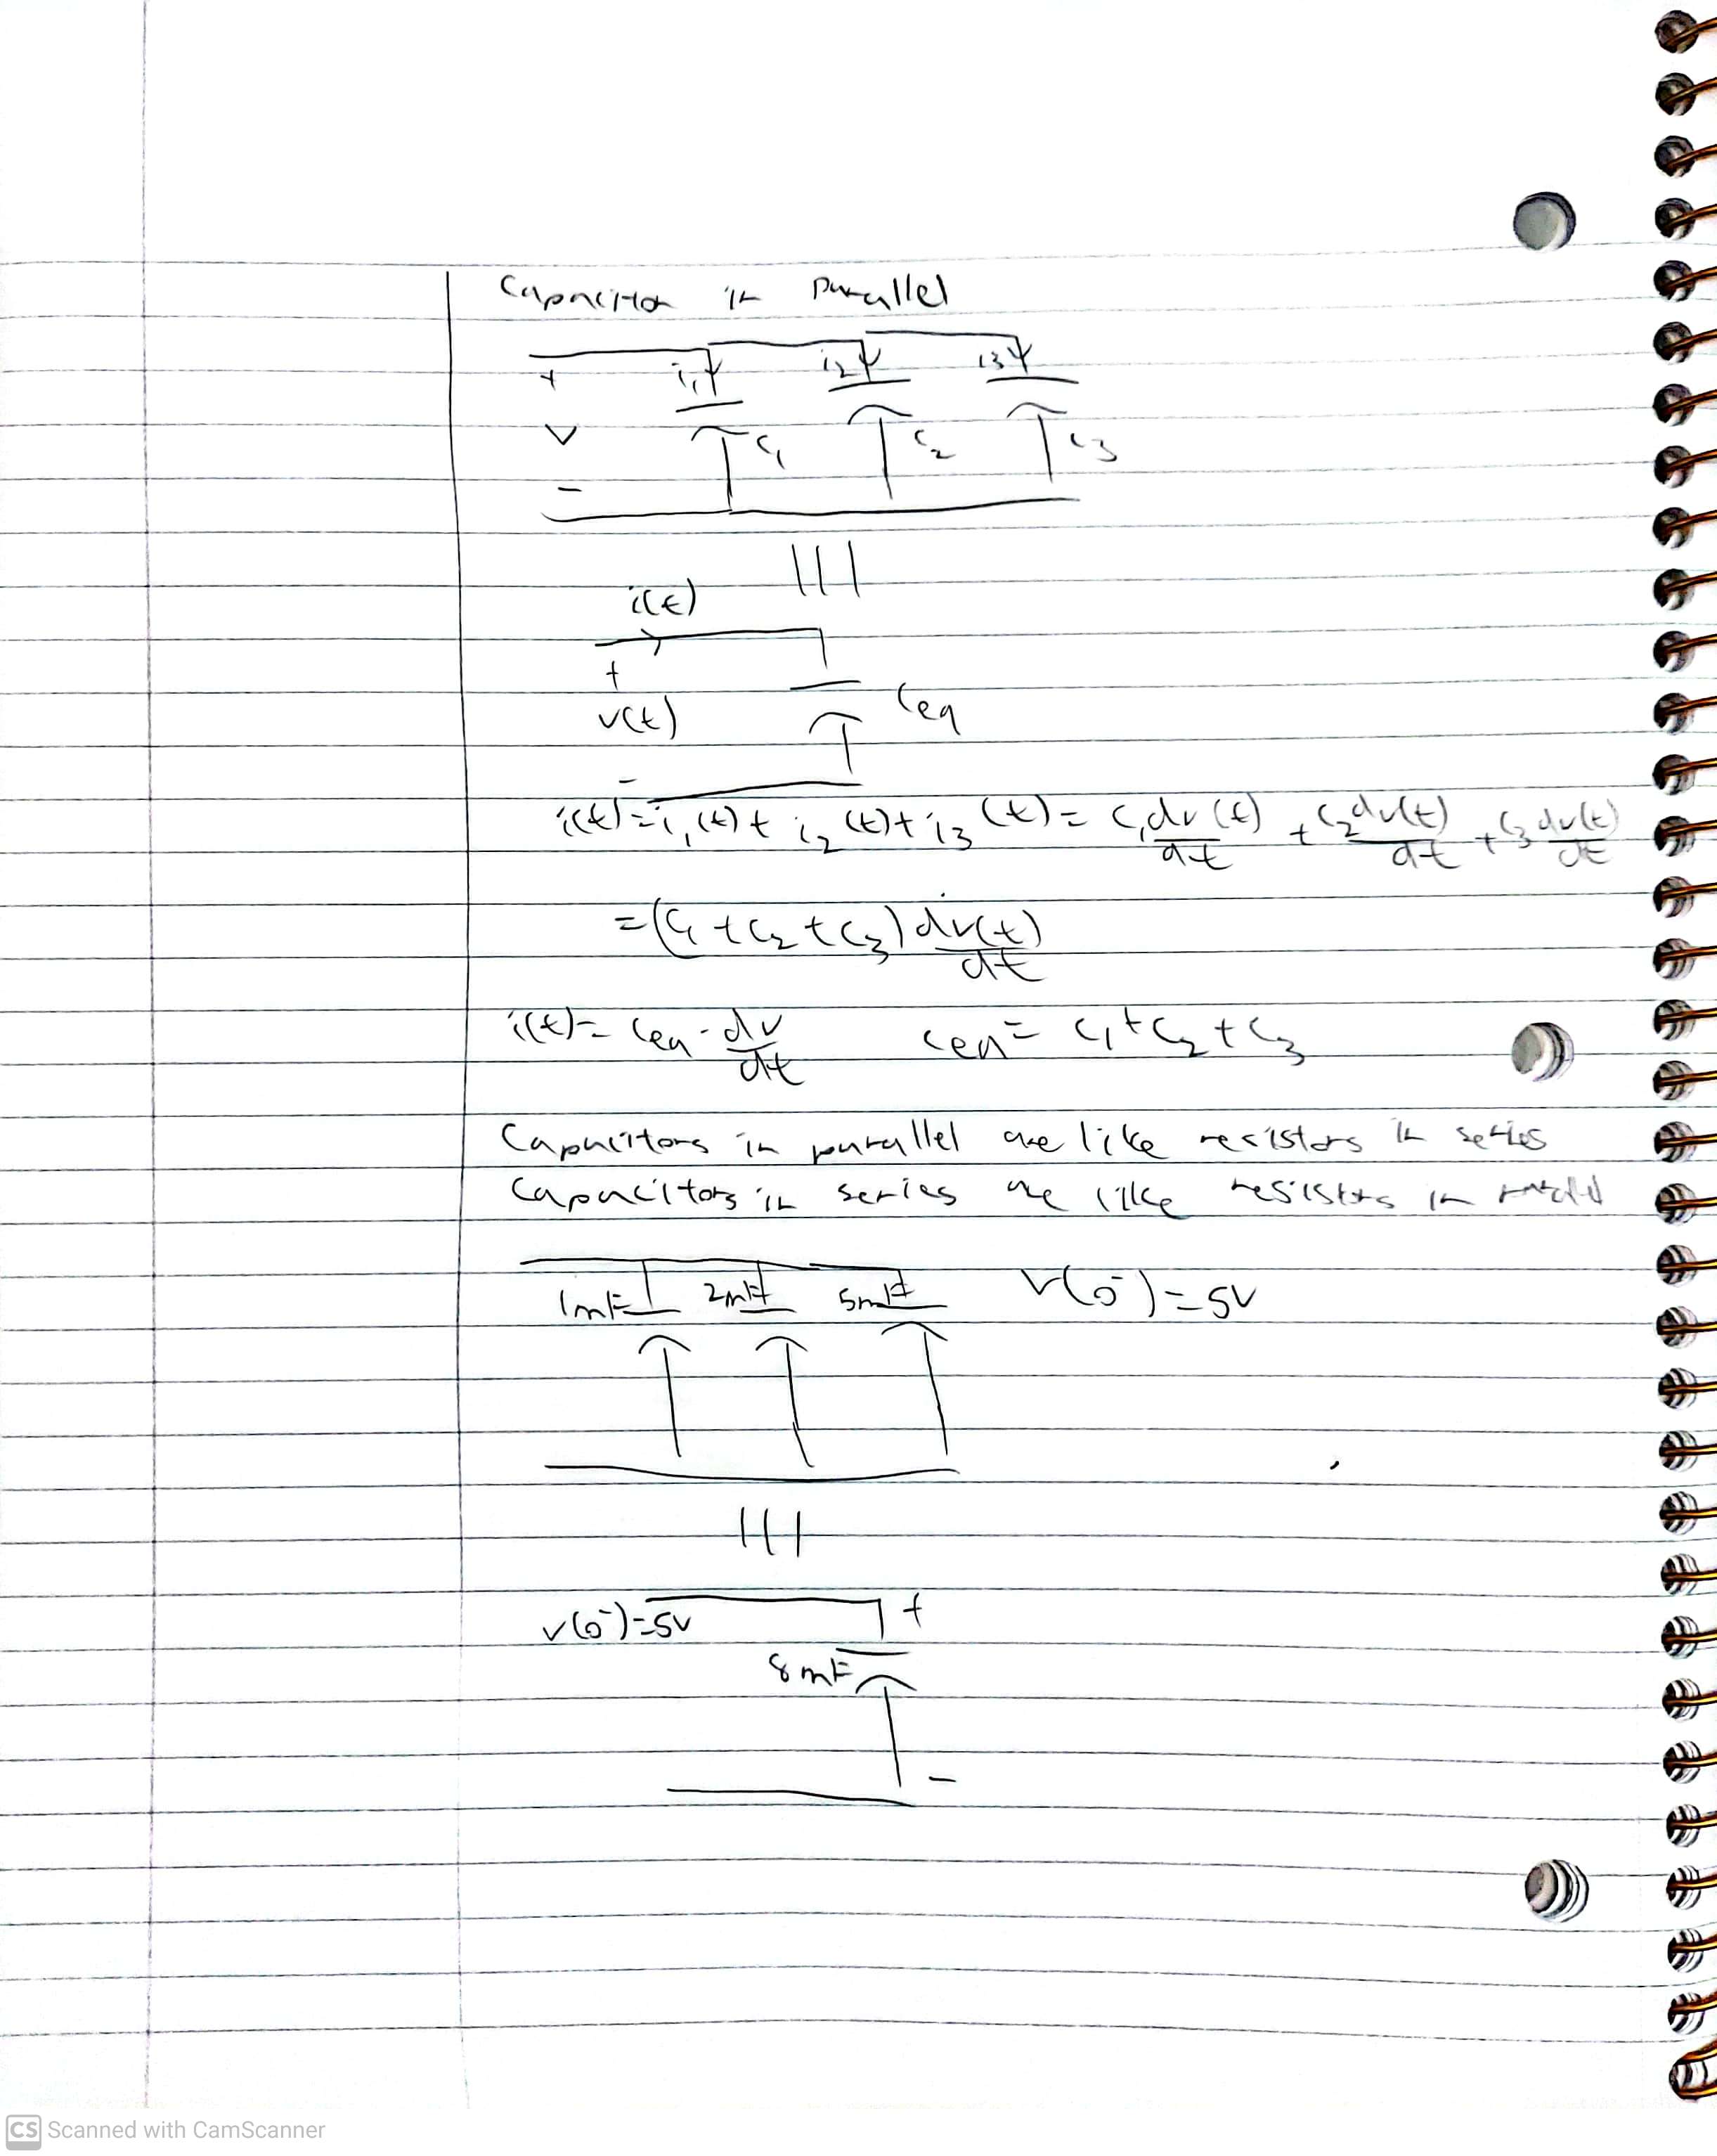 Capacitor in parallel
i1 i2 i3
+
v
-
C1 C2 C3
i(t)
+
v(t)
Ceq
-
i(t) = i1(t) + i2(t) + i3(t) = C1 dv(t)/dt + C2 dv(t)/dt + C3 dv(t)/dt
= (C1 + C2 + C3) dv(t)/dt
i(t) = Ceq · dv/dt Ceq = C1 + C2 + C3
Capacitors in parallel are like resistors in series
Capacitors in series are like resistors in
1mF 2mF 5mF v(0-) = 5V
v(0-) = 5V +
8mF
-
CS Scanned with CamScanner